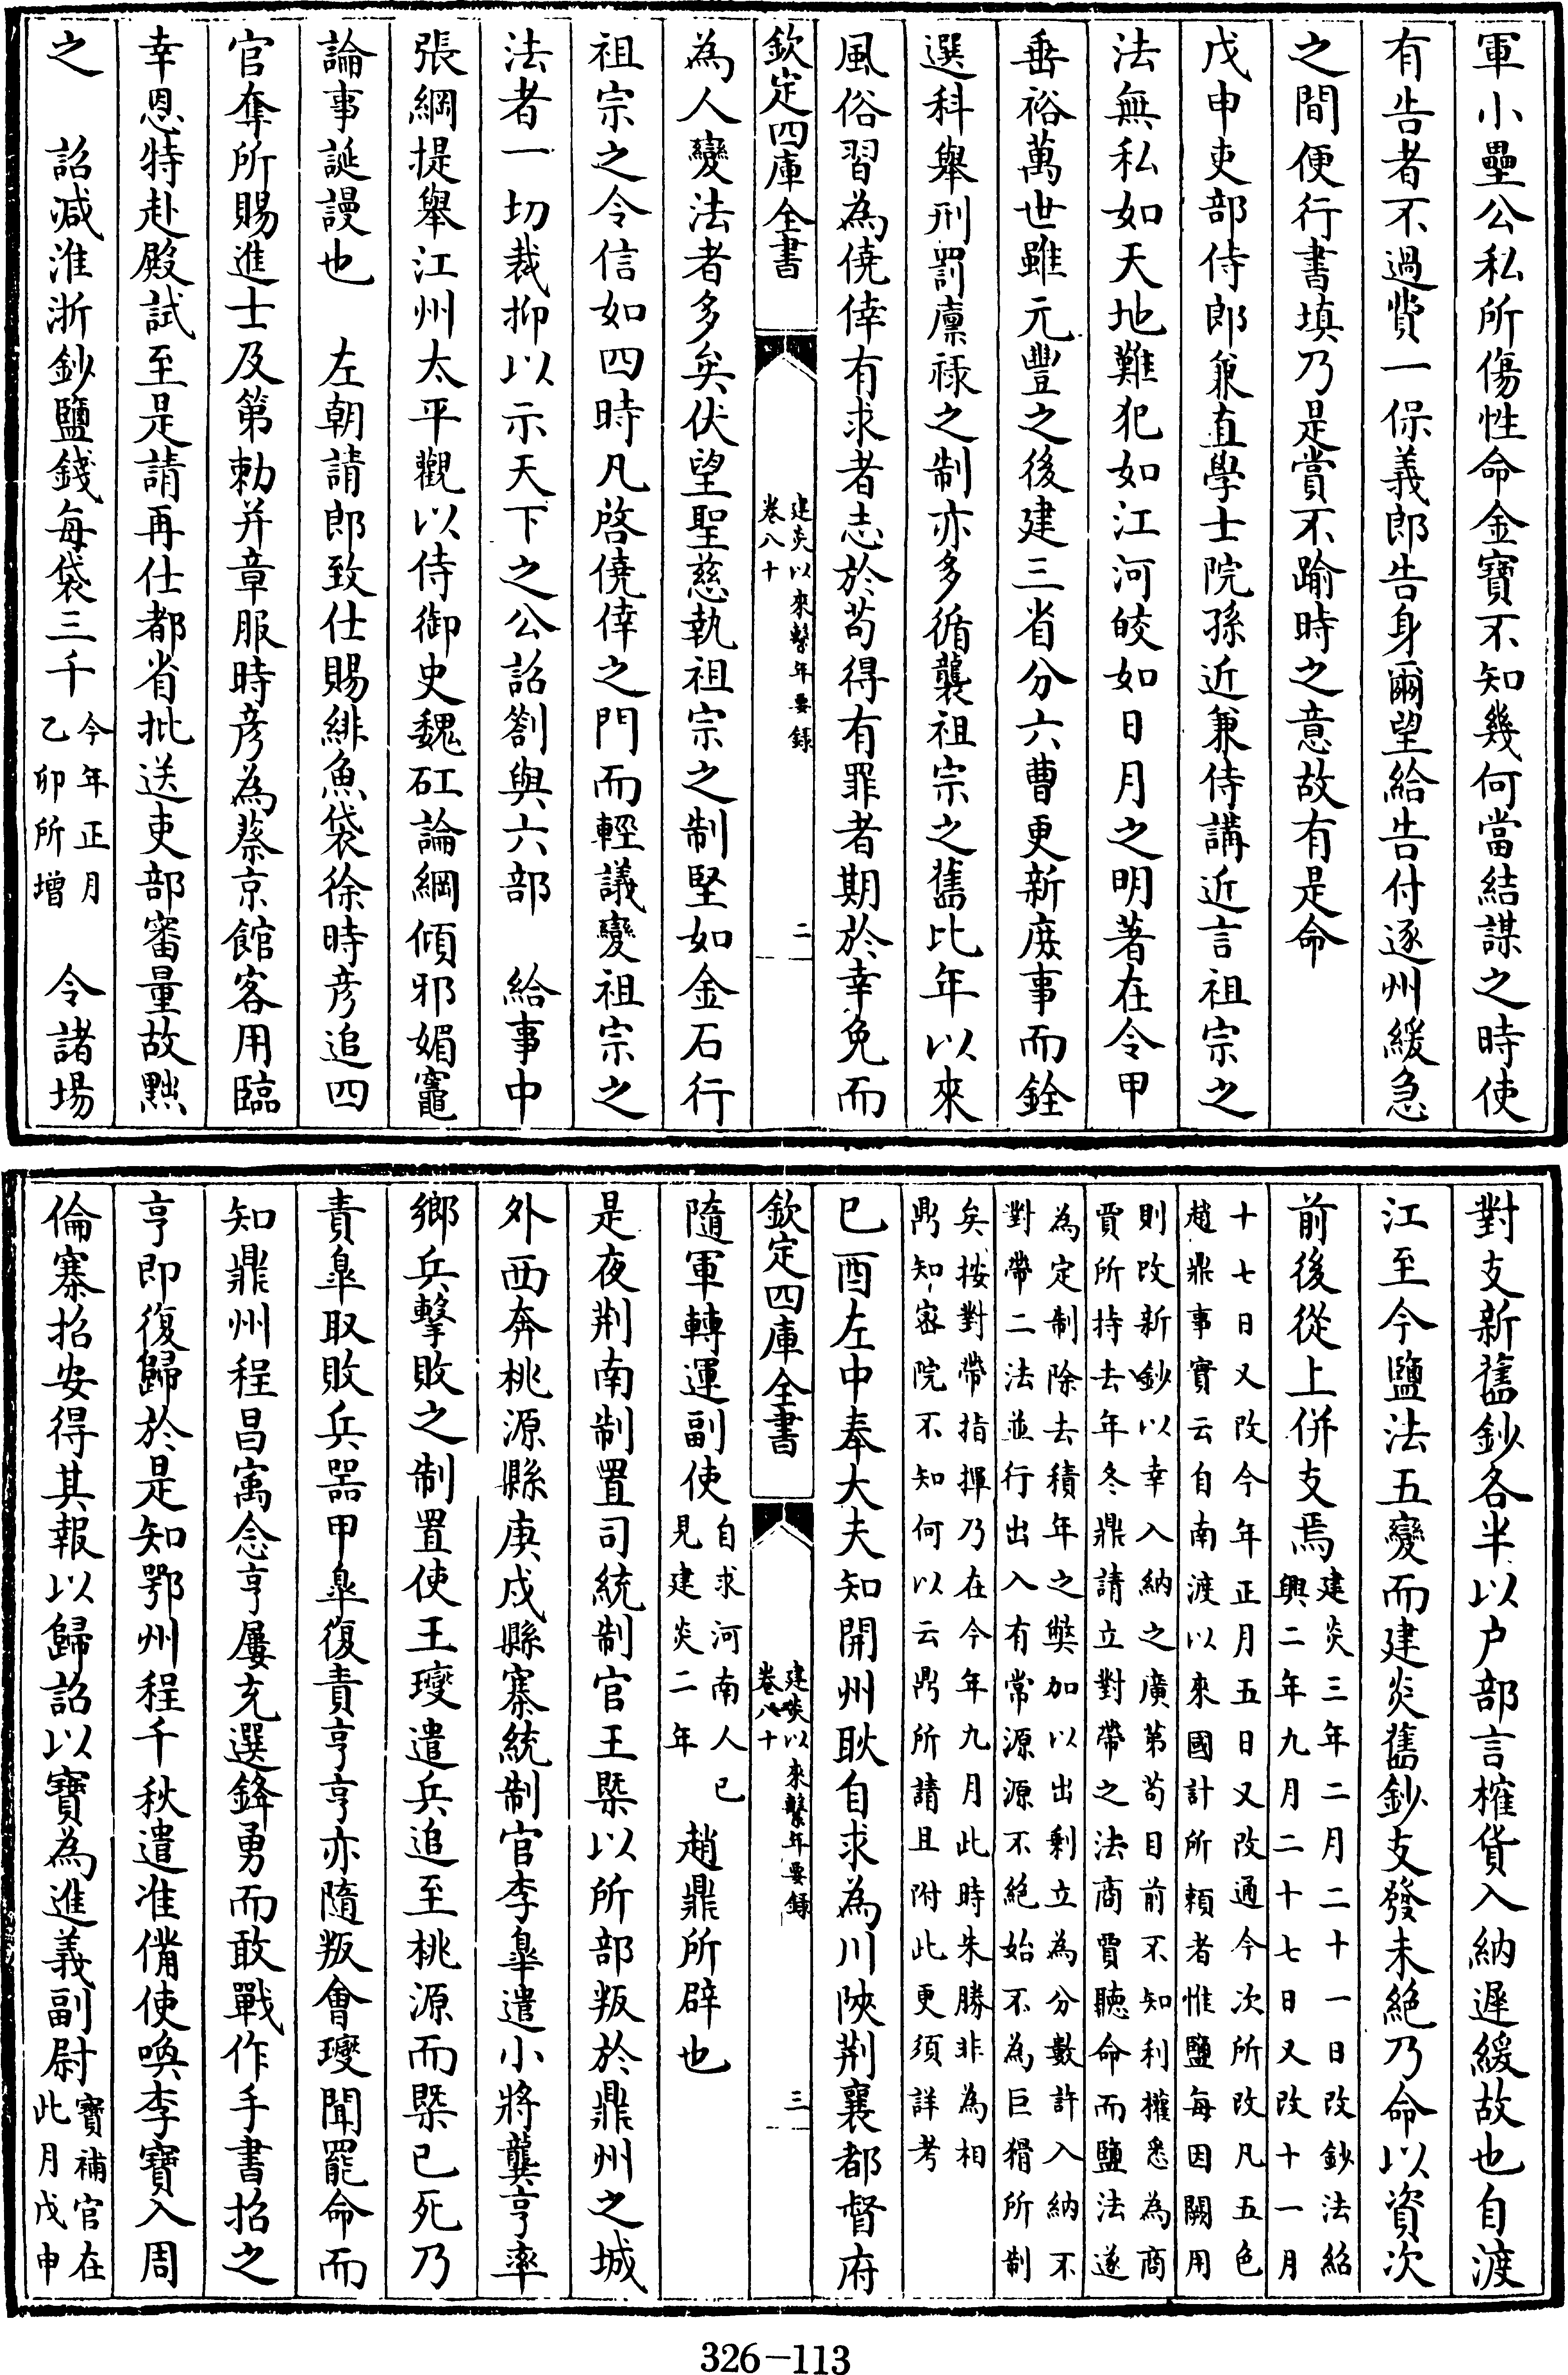 軍小壘公私所傷性命金寶不知幾何當結謀之時使
有告者不過費一保義郎告身爾望給告付逐州緩急
之間便行書填乃是賞不踰時之意故有是命
戊申吏部侍郎兼直學士院孫近兼侍講近言祖宗之
法無私如天地難犯如江河皎如日月之明著在令甲
垂裕萬世雖元豐之後建三省分六曹更新庻事而銓
選科舉刑罰廩禄之制亦多循襲祖宗之舊比年以來
風俗習為僥倖有求者志於苟得有罪者期於幸免而
欽定四庫全書
建炎以來繫年要錄
卷八十
二
為人變法者多矣伏望聖慈執祖宗之制堅如金石行
祖宗之令信如四時凡啓僥倖之門而輕議變祖宗之
法者一切裁抑以示天下之公詔劄與六部　給事中
張綱提舉江州太平觀以侍御史魏矼論綱傾邪媚竈
論事誕謾也　左朝請郎致仕賜緋魚袋徐時彦追四
官奪所賜進士及第勅并章服時彦為蔡京館客用臨
幸恩特赴殿試至是請再仕都省批送吏部審量故黜
之　詔减淮浙鈔鹽錢每袋三千今年正月乙卯所增　令諸場
對支新舊鈔各半以户部言榷貨入納遲緩故也自渡
江至今鹽法五變而建炎舊鈔支發未絶乃命以資次
前後從上併支焉建炎三年二月二十一日改鈔法紹
興二年九月二十七日又改十一月
十七日又改今年正月五日又改通今次所改凡五色
趙鼎事實云自南渡以來國計所頼者惟鹽每因闕用
則改新鈔以幸入納之廣第苟目前不知利權悉為商
賈所持去年冬鼎請立對帶之法商賈聽命而鹽法遂
為定制除去積年之弊加以出剩立為分數許入納不
對帶二法並行出入有常源源不絶始不為巨猾所制
矣按對帶指揮乃在今年九月此時朱勝非為相
鼎知宻院不知何以云鼎所請且附此更須詳考
已酉左中奉大夫知開州耿自求為川陜荆襄都督府
欽定四庫全書
建炎以來繫年要錄
卷八十
三
隨軍轉運副使自求河南人已見建炎二年　趙鼎所辟也
是夜荆南制置司統制官王槩以所部叛於鼎州之城
外西奔桃源縣庚戌縣寨統制官李臯遣小將龔亨率
鄉兵擊敗之制置使王𤫉遣兵追至桃源而槩已死乃
責臯取敗兵器甲臯復責亨亨亦隨叛會𤫉聞罷命而
知鼎州程昌寓念亨屢充選鋒勇而敢戰作手書招之
亨即復歸於是知鄂州程千秋遣准備使喚李寶入周
倫寨招安得其報以歸詔以寶為進義副尉寶補官在
此月戊申
326-113